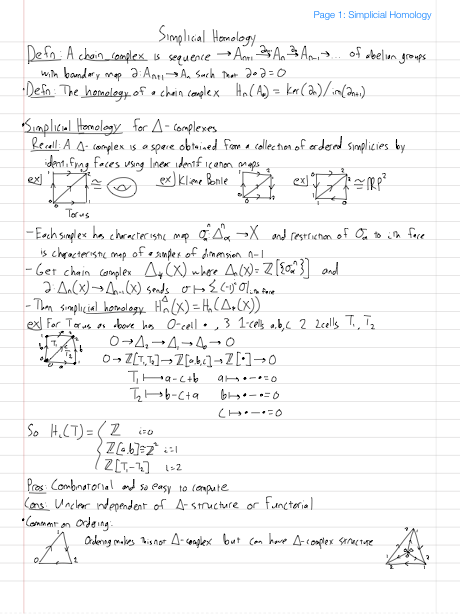 Page 1: Simplicial Homology
Simplicial Homology
Defn: A chain complex is sequence → Aₙ₊₁ →∂ Aₙ →∂ Aₙ₋₁ → ... of abelian groups
with boundary map ∂: Aₙ₊₁ → Aₙ such that ∂∘∂ = 0
• Defn: The homology of a chain complex Hₙ(A•) = ker(∂ₙ)/im(∂ₙ₊₁)
• Simplicial Homology for Δ-complexes
Recall: A Δ-complex is a space obtained from a collection of ordered simplicies by
identifying faces using linear identification maps
ex) ≅ ex) Kleine Bottle ex) ≅ RP²
Torus
- Each simplex has characteristic map σₐⁿ: Δₐⁿ → X and restriction of σₐⁿ to ith face
is characteristic map of a simplex of dimension n-1
- Get chain complex Δ•(X) where Δₙ(X) = ℤ[{σₐⁿ}] and
∂: Δₙ(X) → Δₙ₋₁(X) sends σ ↦ Σ(-1)ⁱ σ|ith face
- Then simplicial homology Hₙ^Δ(X) = Hₙ(Δ•(X))
ex) For Torus as above has 0-cell •, 3 1-cells a,b,c, 2 2cells T₁, T₂
0 → Δ₂ → Δ₁ → Δ₀ → 0
0 → ℤ[T₁,T₂] → ℤ[a,b,c] → ℤ[•] → 0
T₁ ↦ a-c+b a ↦ •-• = 0
T₂ ↦ b-c+a b ↦ •-• = 0
c ↦ •-• = 0
So Hᵢ(T) = { ℤ i=0
ℤ[a,b] ≅ ℤ² i=1
ℤ[T₁-T₂] i=2
Pros: Combinatorial and so easy to compute
Cons: Unclear independent of Δ-structure or functorial
• Comment on Ordering:
Ordering makes this not Δ-complex but can have Δ-complex structure